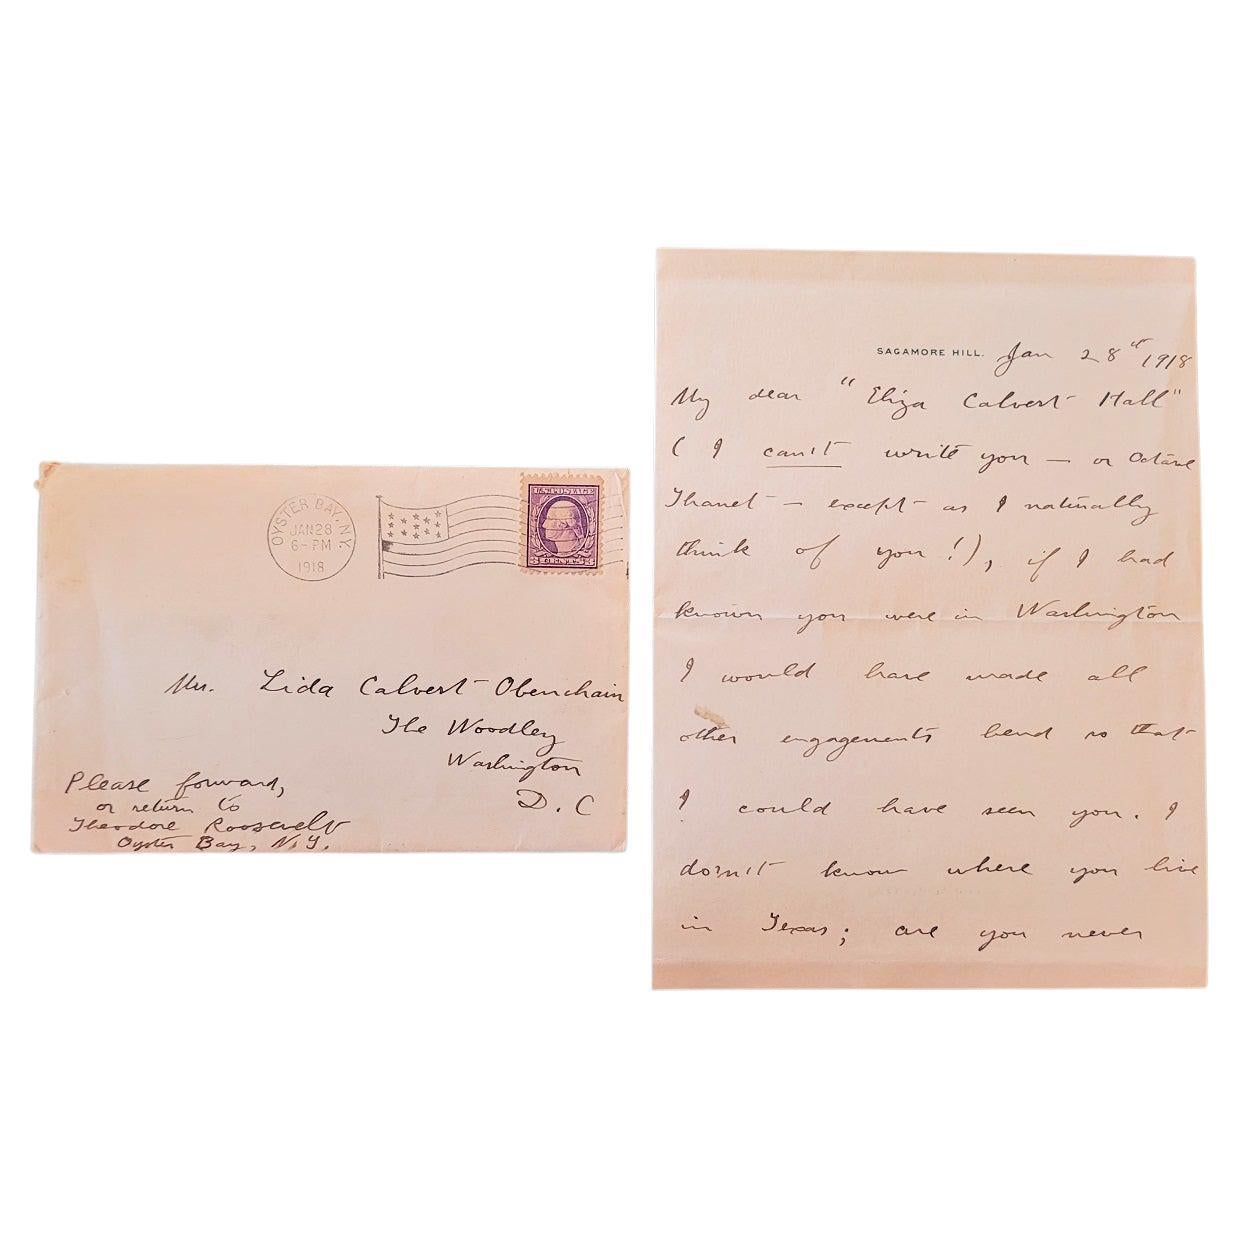 OYSTER BAY, N.Y.
JAN 28
6-PM
1918
U.S. POSTAGE
3 CENTS 3
Mrs. Lida Calvert Obenchain
The Woodley
Washington
D.C
Please forward,
or return to
Theodore Roosevelt
Oyster Bay, N.Y.
SAGAMORE HILL. Jan 28th 1918
My dear "Eliza Calvert Hall"
( I can't write you — or Octave
Thanet — except as I naturally
think of you!), if I had
known you were in Washington
I would have made all
other engagements bend so that
I could have seen you. I
don't know where you live
in Texas; are you never